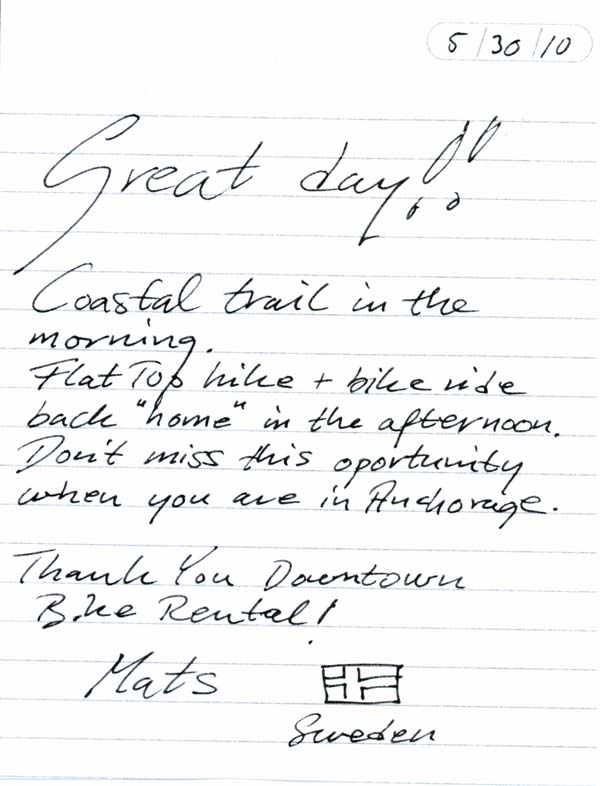 5/30/10
Great day!!
Coastal trail in the
morning.
Flat Top hike + bike ride
back "home" in the afternoon.
Don't miss this oportunity
when you are in Anchorage.
Thank You Downtown
Bike Rental!
Mats
Sweden